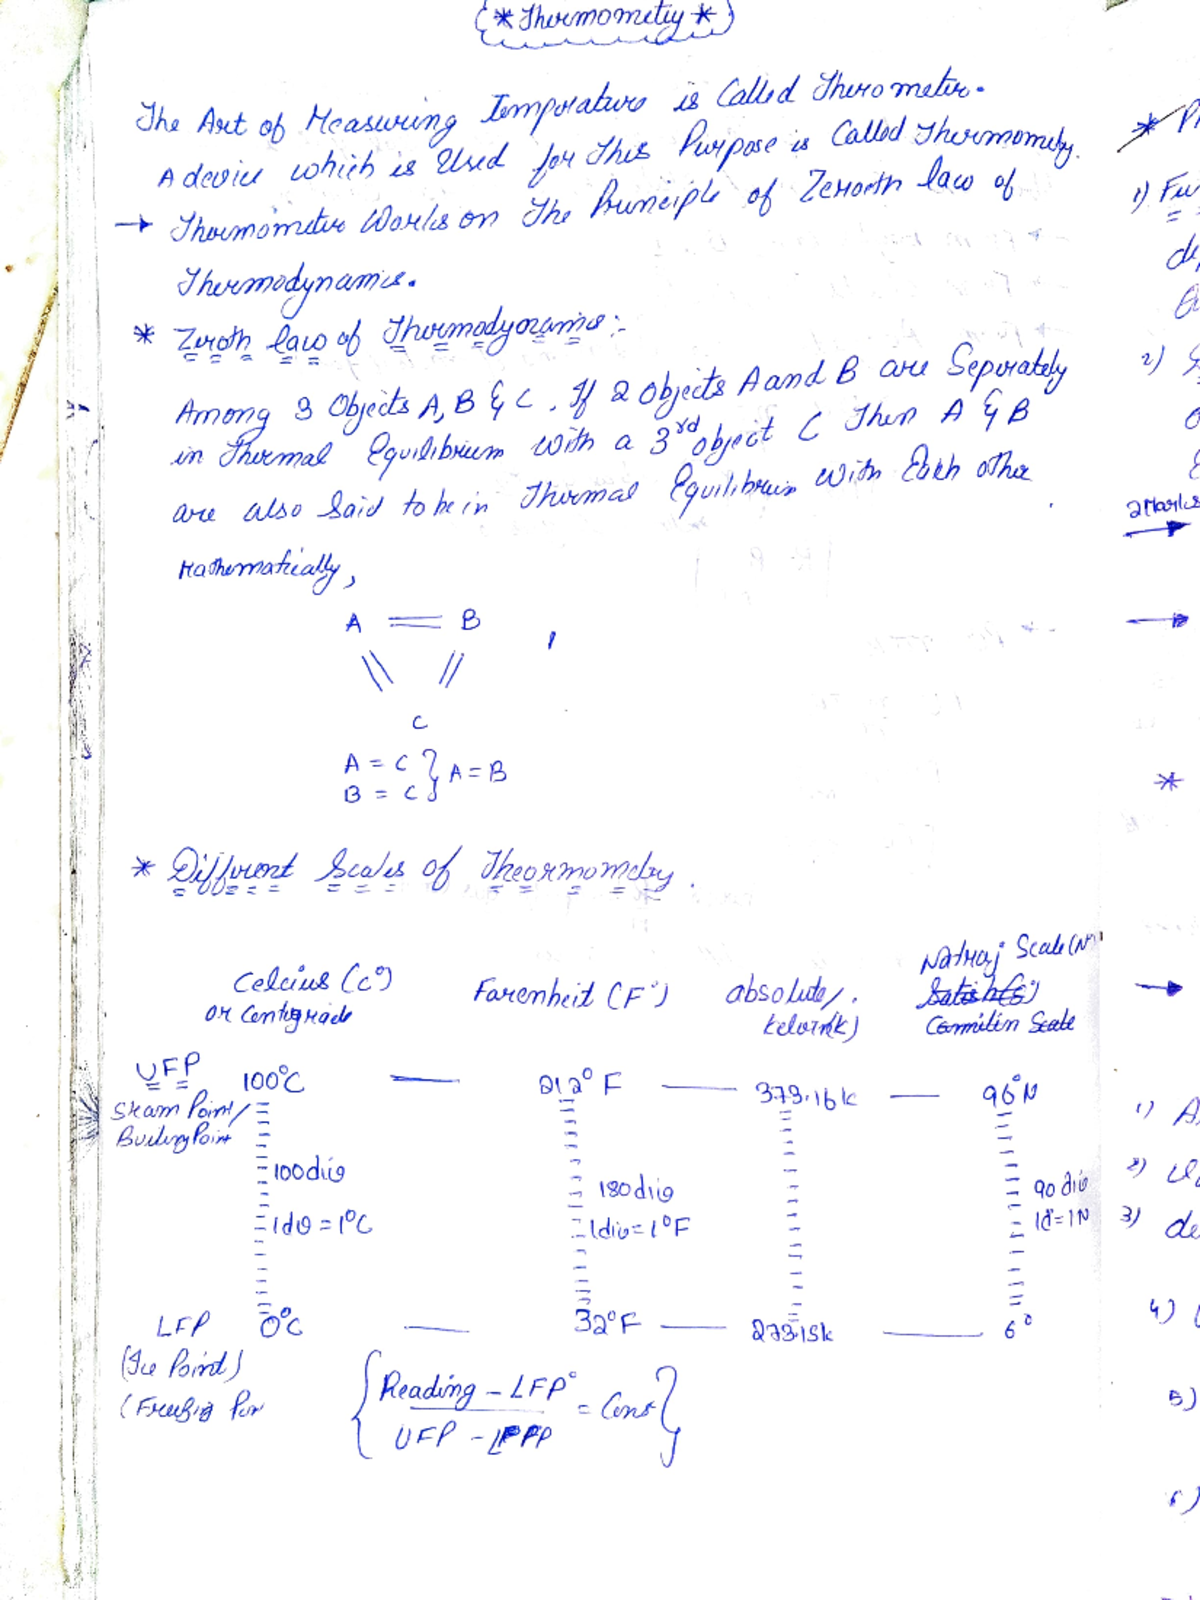 * Thermometry *
The Art of Measuring Temperature is Called Therometer.
A device which is Used for This Purpose is Called Thermometry.
→ Thermometer Works on The Principle of Zeroeth law of
Thermodynamics.
* Zeroth law of Thermodynamics :-
Among 3 Objects A, B & C. If 2 objects A and B are Seperately
in Thermal Equilibrium with a 3rd object C Then A & B
are also Said to be in Thermal Equilibrium With Each other
Mathematically,
A = B
\\ //
C
A = C } A = B
B = C
* Different Scales of Theormometry.
Celcius (c°)
or Centigrade
Farenheit (F°)
absolute/
kelvin(k)
Natraj Scale (N°)
Camilin Scale
UFP
Steam Point/
Boiling Point
100°C — 212°F — 373.16k — 96°N
100 div
1 div = 1°C
180 div
1 div = 1°F
90 div
1d = 1N
LFP 0°C — 32°F — 273.15k — 6°
(Ice Point)
(Freezing
{ Reading - LFP° / UFP - LFP = Const }
* 
1)
2)
2 Marks
→
→
*
→
1) A
2)
3) de
4)
5)
6)